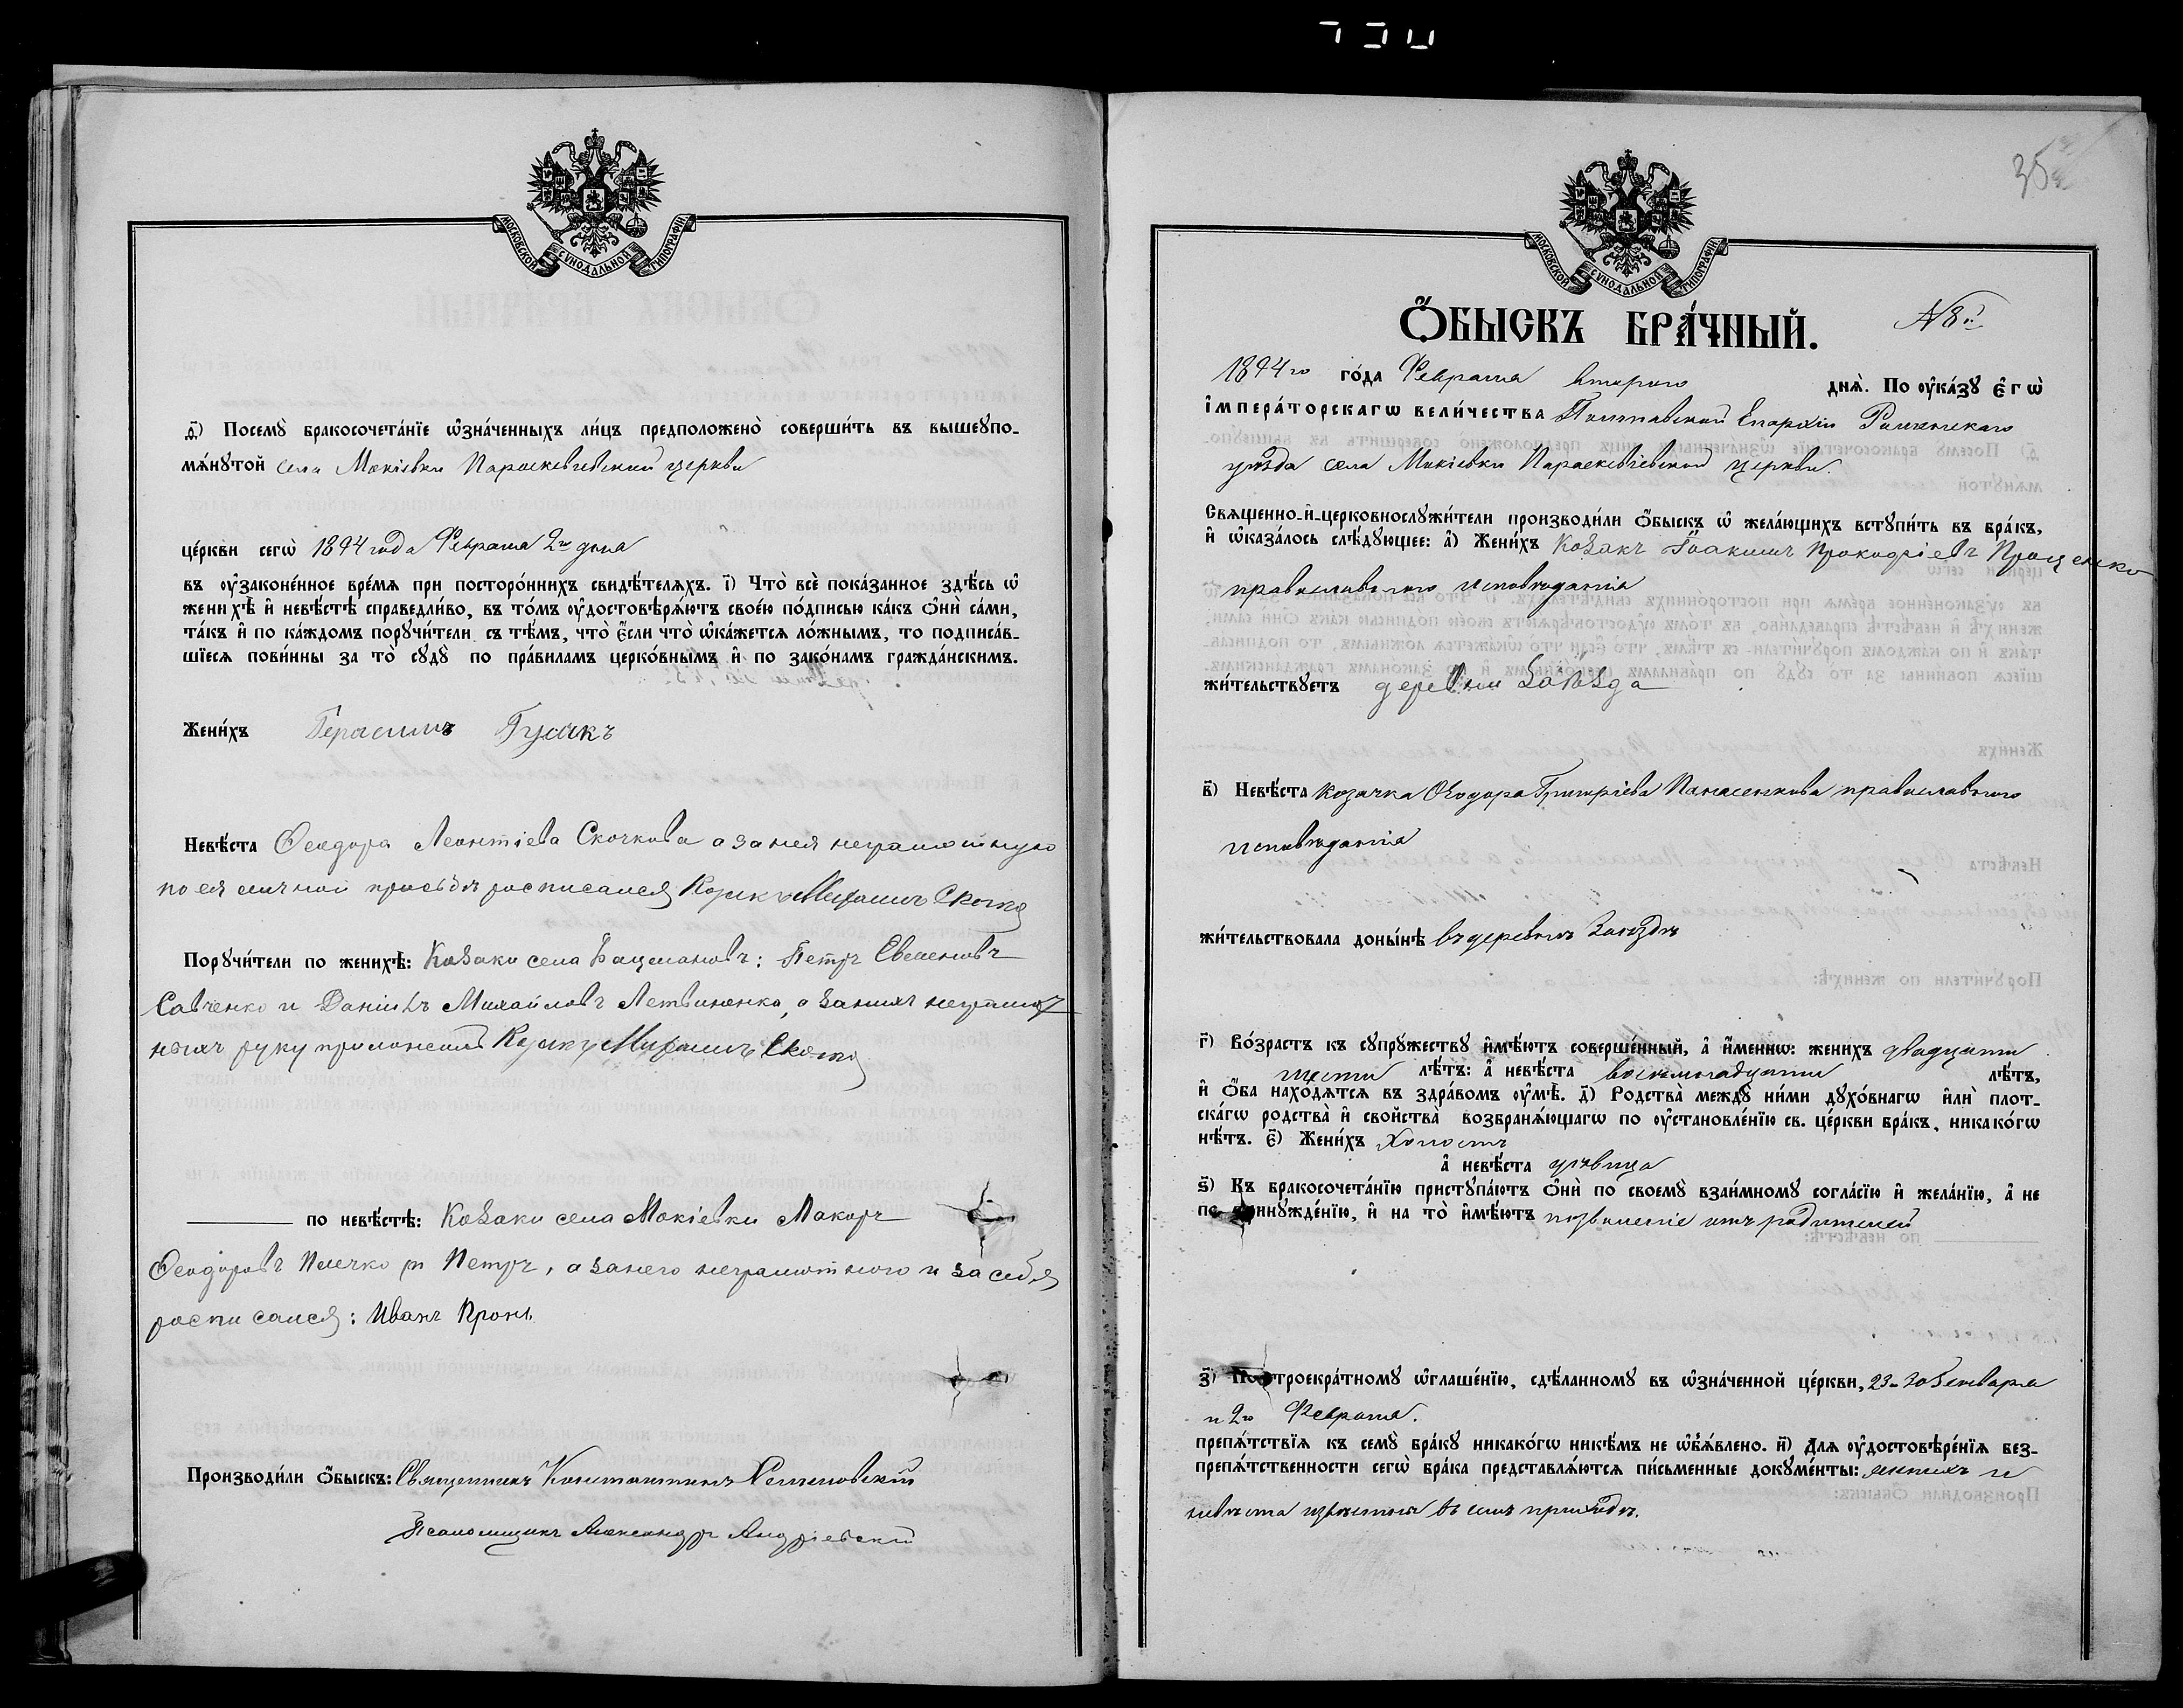 МОСКОВСКОЙ СѴНОДАЛЬНОЙ ТИПОГРАФІИ
д҃) Посемꙋ̀ бракосочета́нїе ѡ҆зна́ченныхъ ли́цъ предположено̀ соверши́ть въ вышеꙋпо-
мѧ́нꙋтой села Мокіевки Параскевіевской церкви
це́ркви сегѡ̀ 1894 года Февраля 2го дня
въ ᲂу҆законе́нное вре́мѧ при посторо́ннихъ свидѣ́телѧхъ. і҃) Что̀ всѐ пока́занное здѣ́сь ѡ҆
женихѣ̀ и҆ невѣ́стѣ справедли́во, въ то́мъ ᲂу҆достовѣрѧ́ютъ свое́ю по́дписью ка́къ ѻ҆нѝ са́ми,
та́къ и҆ по ка́ждомъ порꙋчи́тели съ тѣ́мъ, что̀ є҆́сли что̀ ѡ҆ка́жетсѧ ло́жнымъ, то подписа́в-
шїесѧ пови́нны за то̀ сꙋдꙋ̀ по пра́виламъ церко́внымъ и҆ по зако́намъ гражда́нскимъ.
Жени́хъ Герасимъ Гусакъ
Невѣ́ста Ѳеодора Леонтіева Скочкова а за нея неграмотную
по ея личной просьбѣ росписался Козакъ Скочко
Порꙋчи́тели по женихѣ̀: Козаки села Бацмановъ: Петръ Савченко и Даніилъ Михайловъ Летвиненко, а за нихъ неграмот
ныхъ руку приложилъ Козакъ Скочко
по невѣ́стѣ: Козаки села Мокіевки Макаръ
Ѳеодоровъ Плечко и Петръ, а за него неграмотного и за себя
росписался: Иванъ Пронь
Производи́ли ѻ҆́быскъ: Священникъ Константинъ
Псаломщикъ Александръ Андріевскій
35
МОСКОВСКОЙ СѴНОДАЛЬНОЙ ТИПОГРАФІИ
Ѻ҆БЫСКЪ БРА́ЧНЫЙ. №8й
1894го го́да Февраля второго днѧ̀. По ᲂу҆ка́зꙋ є҆гѡ̀
і҆мпера́торскагѡ вели́чества Полтавской Епархіи Роменскаго
уѣзда села Мокіевки Параскевіевской церкви.
Свѧщенно-и҆-церковнослꙋжи́тели производи́ли ѻ҆́быскъ ѡ҆ жела́ющихъ встꙋпи́ть въ бра́къ,
и҆ ѡ҆каза́лось слѣ́дꙋющее: а҃) Жени́хъ Козакъ Іоакимъ Прокофіевъ Проценко
православного исповѣданія
жи́тельствꙋетъ деревни Заѣзда
в҃) Невѣ́ста козачка Ѳеодора Григоріева Панасенкова православного
исповѣданія
жи́тельствовала доны́нѣ въ деревнѣ Заѣздѣ
г҃) Во́зрастъ къ сꙋпрꙋ́жествꙋ и҆мѣ́ютъ соверше́нный, а҆ и҆́меннѡ: жени́хъ двадцати
шести лѣ́тъ: а҆ невѣ́ста восемнадцати лѣ́тъ,
и҆ ѻ҆́ба нахо́дѧтсѧ въ здра́вомъ ᲂу҆мѣ̀. д҃) Родства̀ междꙋ̀ ни́ми дꙋхо́внагѡ и҆лѝ плот-
ска́гѡ родства̀ и҆ свойства̀ возбранѧ́ющагѡ по ᲂу҆становле́нїю св. це́ркви бра́къ, никако́гѡ
нѣ́тъ. є҃) Жени́хъ холостъ
а҆ невѣ́ста дѣвица
ѕ҃) Къ бракосочета́нїю пристꙋпа́ютъ ѻ҆нѝ по своемꙋ̀ взаи́мномꙋ согла́сїю и҆ жела́нїю, а҆ не
по принꙋжде́нїю, и҆ на то̀ и҆мѣ́ютъ позволеніе отъ родителей
з҃) По троекра́тномꙋ ѡ҆глаше́нїю, сдѣ́ланномꙋ въ ѡ҆зна́ченной це́ркви, 23. 30 Генваря
и 2го Февраля.
препѧ́тствїѧ къ семꙋ̀ бра́кꙋ никако́гѡ никѣ́мъ не ѡ҆б̾ѧ́влено. и҃) Длѧ ᲂу҆достовѣре́нїѧ без-
препѧ́тственности сегѡ̀ бра́ка представлѧ́ютсѧ пи́сьменные докꙋме́нты: женихъ и
невѣста извѣстны въ семъ приходѣ.